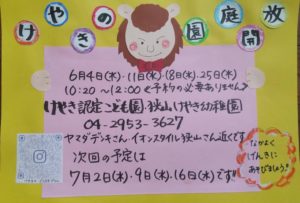 けやきの園庭放開
6月4日(水)・11日(水)・18日(水)・25日(水)
10:20〜12:00 《予約の必要ありません》
けやき認定こども園・狭山けやき幼稚園
04-2953-3627
ヤマダデンキさん・イオンスタイル狭山さん近くです
次回の予定は
7月2日(水)・9日(水)・16日(水)です!!
なかよく
げんきに
あそびましょう♪